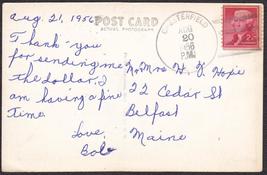 Aug. 21, 1956
POST CARD
ACTUAL PHOTOGRAPH
CHESTERFIELD
AUG
20
1956
P.M.
Thank-you
for sending me
the dollar. I
am having a fine
time.
Love,
Bob
Mr. Mrs H. F. Hope
22 Cedar St
Belfast
Maine
2¢